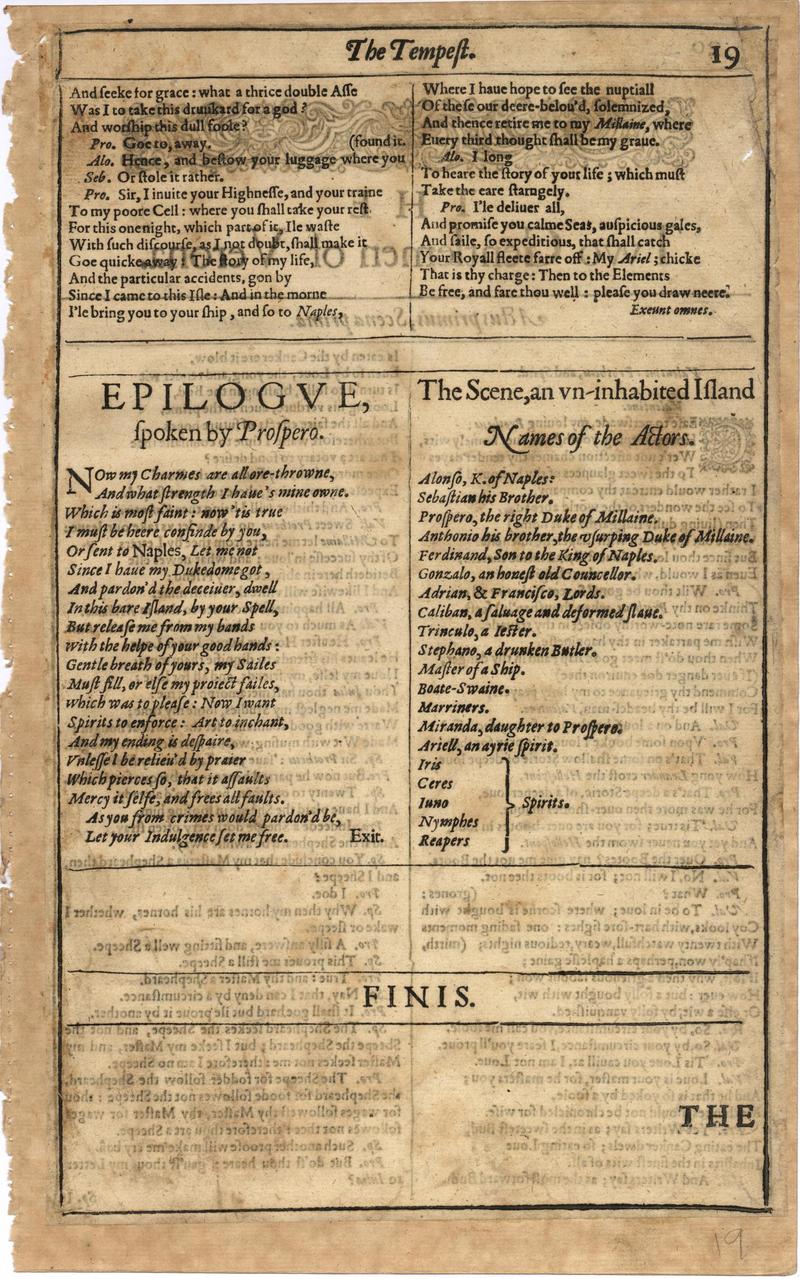 The Tempeſt.
19
And ſeeke for grace: what a thrice double Aſſe
Was I to take this drunkard for a god?
And worſhip this dull foole?
Pro. Goe to, away. (found it.
Alo. Hence, and beſtow your luggage where you
Seb. Or ſtole it rather.
Pro. Sir, I inuite your Highneſſe, and your traine
To my poore Cell: where you ſhall take your reſt
For this one night, which part of it, Ile waſte
With ſuch diſcourſe, as I not doubt, ſhall make it
Goe quicke away: The ſtory of my life,
And the particular accidents, gon by
Since I came to this Iſle: And in the morne
I'le bring you to your ſhip, and ſo to Naples,
Where I haue hope to ſee the nuptiall
Of theſe our deere-belou'd, ſolemnized,
And thence retire me to my Millaine, where
Euery third thought ſhall be my graue.
Alo. I long
To heare the ſtory of your life; which muſt
Take the eare ſtarngely.
Pro. I'le deliuer all,
And promiſe you calme Seas, auſpicious gales,
And ſaile, ſo expeditious, that ſhall catch
Your Royall fleete farre off: My Ariel; chicke
That is thy charge: Then to the Elements
Be free, and fare thou well: pleaſe you draw neere.
Exeunt omnes.
EPILOGVE,
ſpoken by Proſpero.
NOw my Charmes are all ore-throwne,
And what ſtrength I haue's mine owne.
Which is moſt faint: now 'tis true
I muſt be heere confinde by you,
Or ſent to Naples, Let me not
Since I haue my Dukedome got,
And pardon'd the deceiuer, dwell
In this bare Iſland, by your Spell,
But releaſe me from my bands
With the helpe of your good hands:
Gentle breath of yours, my Sailes
Muſt fill, or elſe my proiect failes,
Which was to pleaſe: Now I want
Spirits to enforce: Art to inchant,
And my ending is deſpaire,
Vnleſſe I be relieu'd by praier
Which pierces ſo, that it aſſaults
Mercy it ſelfe, and frees all faults.
As you from crimes would pardon'd be,
Let your Indulgence ſet me free. Exit.
The Scene, an vn-inhabited Iſland
Names of the Actors.
Alonſo, K. of Naples:
Sebaſtian his Brother.
Proſpero, the right Duke of Millaine.
Anthonio his brother, the vſurping Duke of Millaine.
Ferdinand, Son to the King of Naples.
Gonzalo, an honeſt old Councellor.
Adrian, & Franciſco, Lords.
Caliban, a ſaluage and deformed ſlaue.
Trinculo, a Ieſter.
Stephano, a drunken Butler.
Maſter of a Ship.
Boate-Swaine.
Marriners.
Miranda, daughter to Proſpero.
Ariell, an ayrie ſpirit.
Iris
Ceres
Iuno } Spirits.
Nymphes
Reapers
FINIS.
THE
19